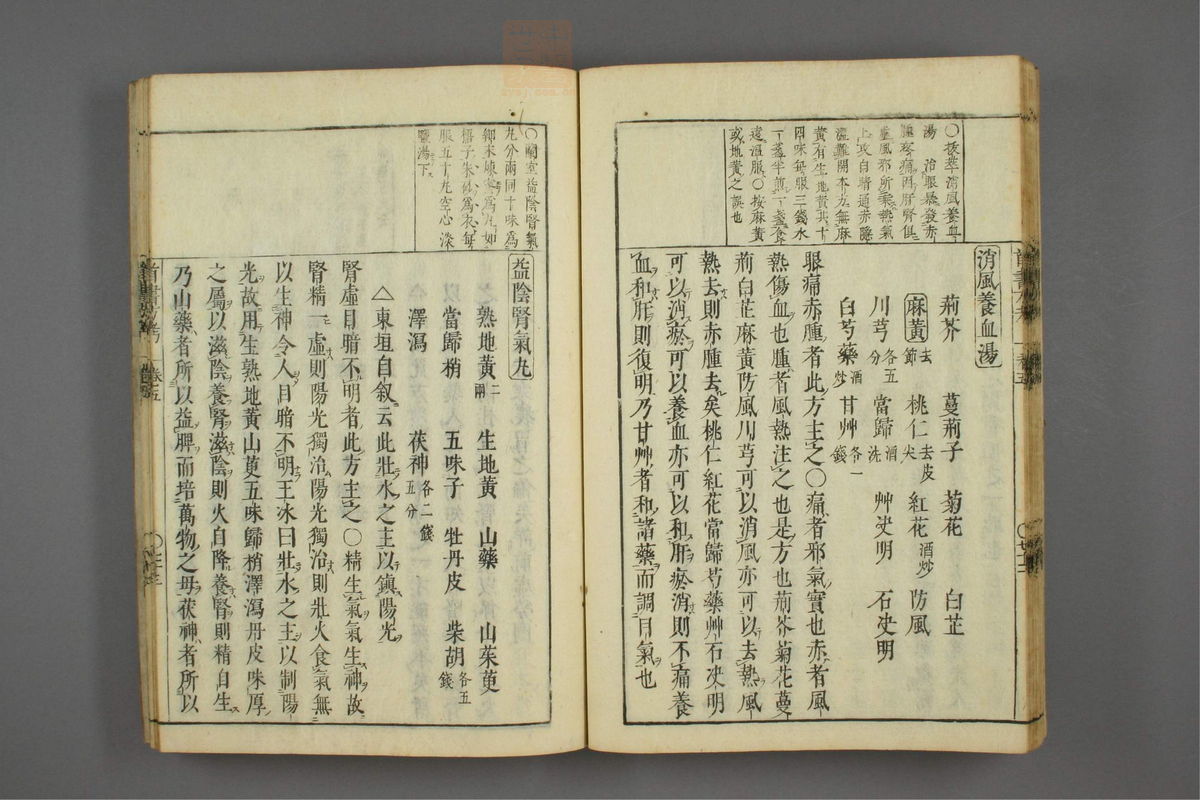 消風養血湯
荊芥 蔓荊子 菊花 白芷
麻黃去節 桃仁去皮尖 紅花酒炒 防風
川芎各五分 當歸酒洗 艸决明 石决明
白芍藥酒炒 甘艸各一錢
眼痛赤腫者此方主之○痛者邪氣實也赤者風
熱傷血也腫者風熱注之也是方也荊芥菊花蔓
荊白芷麻黃防風川芎可以消風亦可以去熱風
熱去則赤腫去矣桃仁紅花當歸芍藥艸石决明
可以消瘀可以養血亦可以和肝瘀消則不痛養
血和肝則復明乃甘艸者和諸藥而調目氣也
湯 治眼暴發赤
腫疼痛因肝腎俱
虛風邪所乘熱氣
上攻白睛通赤隱
澀難開本方無麻
黃有生地黃共十
四味每服三錢水
一盞半煎一盞食
遠溫服○按麻黃
或地黃之誤也
益陰腎氣丸
熟地黃二兩 生地黃 山藥 山茱萸
當歸梢 五味子 牡丹皮 柴胡各五錢
澤瀉 茯神各二錢五分
△東垣自叙云此壯水之主以鎮陽光
腎虛目暗不明者此方主之○精生氣氣生神故
腎精一虛則陽光獨治陽光獨治則壯火食氣無
以生神令人目暗不明王冰曰壯水之主以制陽
光故用生熟地黃山萸五味歸梢澤瀉丹皮味厚
之屬以滋陰養腎滋陰則火自降養腎則精自生
乃山藥者所以益脾而培萬物之母茯神者所以
○蘭室益陰腎氣
丸分兩同十味爲
細末煉蜜爲丸如
梧子朱砂爲衣每
服五十丸空心淡
鹽湯下